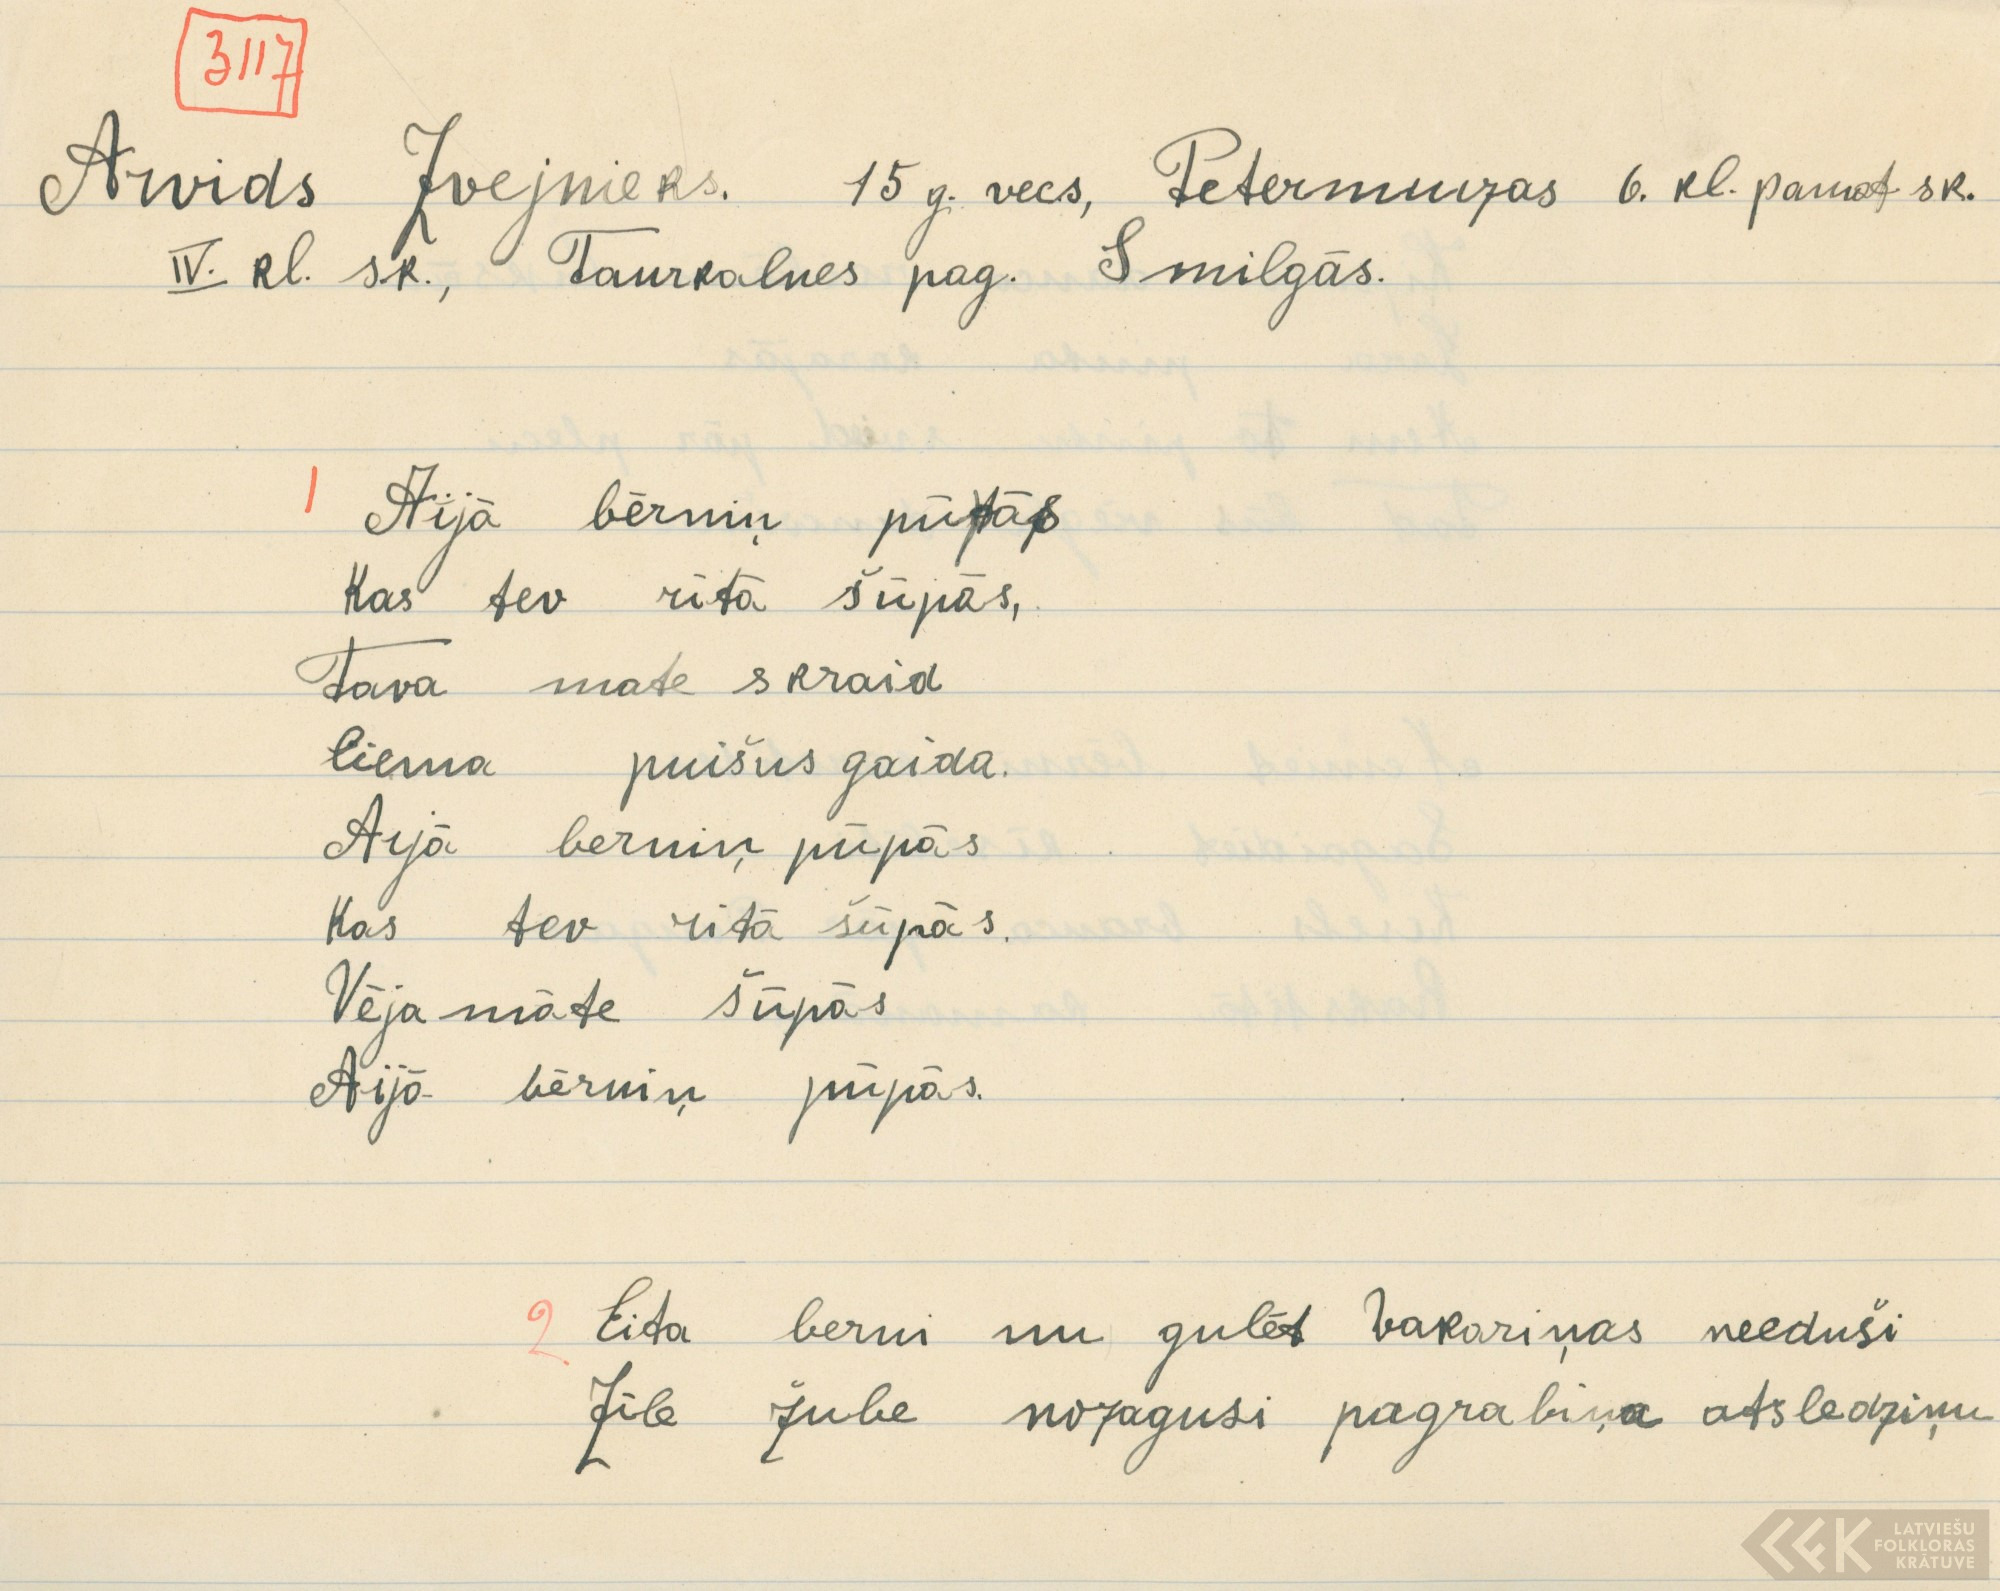 3117
Arvids Zvejnieks. 15 g. vecs, Petermuizas 6. kl. pamat sk.
IV. kl. sk., Taurkalnes pag. Smilgās.
1 Aijā bērniņ
Kas tev rītā šūpās,
Tava mate skraid
Ciema puišus gaida.
Aijā berniņ pūpās
Kas tev ritā šūpās.
Vēja māte šūpās
Aijā bērniņ pūpās.
2 Eita berni nu gulēt vakariņas needuši
Zīle žube nozagusi pagrabiņa atsledziņu
LATVIEŠU
FOLKLORAS
KRĀTUVE